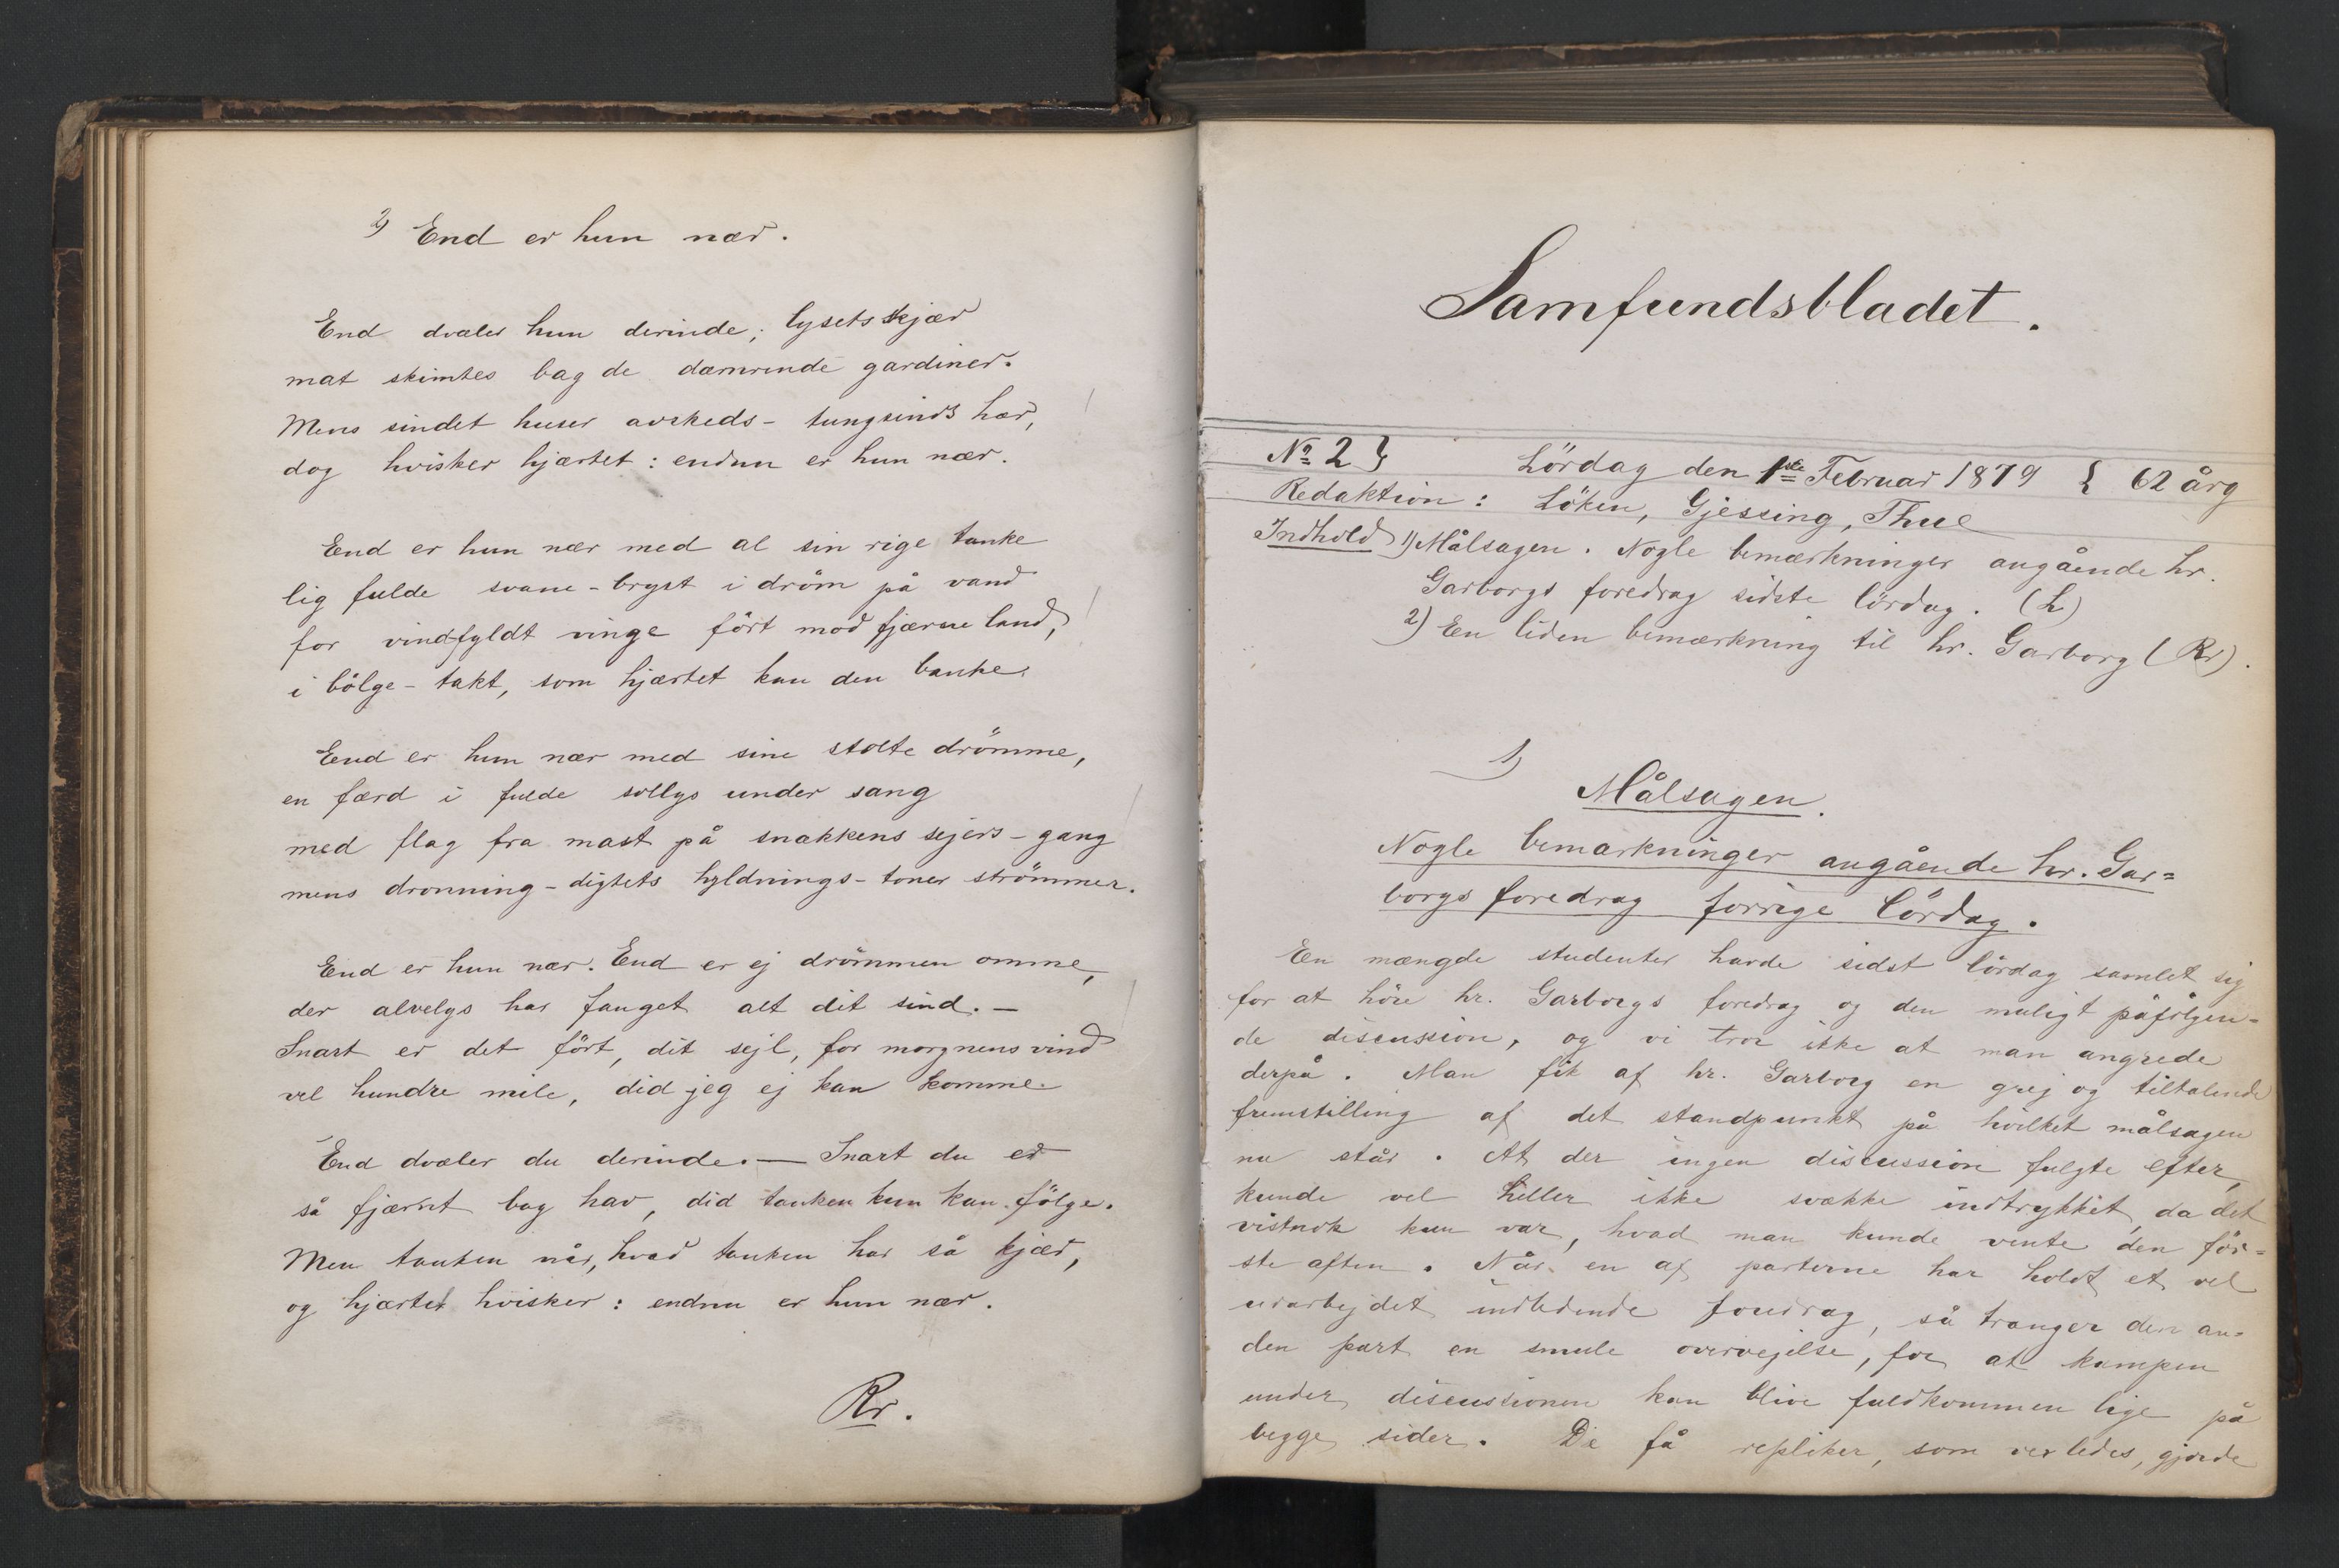 2) End er hun nær.
End dvæler hun derinde; lysets skjær
mat skimtes bag de dæmrende gardiner.
Mens sindet huser avskeds-tungsinds hær,
dog hvisker hjærtet: endnu er hun nær.
End er hun nær med al sin rige tanke
lig fulde svane-bryst i dröm på vand
for vindfyldt vinge fört mod fjærne land,
i bölge-takt, som hjærtet kan den banke.
End er hun nær med sine stolte drömme,
en færd i fulde sollys under sang
med flag fra mast på snækkens sejers-gang
mens dronning-digtets hyldnings-toner strömmer.
End er hun nær. End er ej drömmen omme,
der alvelys har fanget alt dit sind. —
Snart er det fört, dit sejl, for morgnens vind
vel hundre mile, did jeg ej kan komme.
End dvæler du derinde. — Snart du er
så fjærnt bag hav, did tanken kun kan fölge.
Men tanken når, hvad tanken har så kjær,
og hjærtet hvisker: endnu er hun nær.
Rr.
Samfundsbladet.
No 2 } Lördag den 1ste Februar 1879 { 62 årg
Redaktion: Löken, Gjessing, Thue
Indhold 1) Målsagen. Nogle bemærkninger angående hr.
Garborgs foredrag sidste lördag. (L)
2) En liden bemærkning til hr. Garborg (Rr).
1)
Målsagen.
Nogle bemærkninger angående hr. Gar=
borgs foredrag forrige lördag.
En mængde studenter havde sidst lördag samlet sig
for at höre hr. Garborgs foredrag og den muligt påfölgen-
de discussion, og vi tror ikke at man angrede
derpå. Man fik af hr. Garborg en grej og tiltalende
fremstilling af det standpunkt på hvilket målsagen
nu står. At der ingen discussion fulgte efter,
kunde vel heller ikke svække indtrykket, da det
vistnok kun var, hvad man kunde vente den för=
ste aften. Når en af parterne har holdt et vel
udarbejdet indledende foredrag, så trænger den an=
den part en smule overvejelse, for at kampen
under discussionen kan blive fuldkommen lige på
begge sider. De få repliker, som vexledes, gjorde